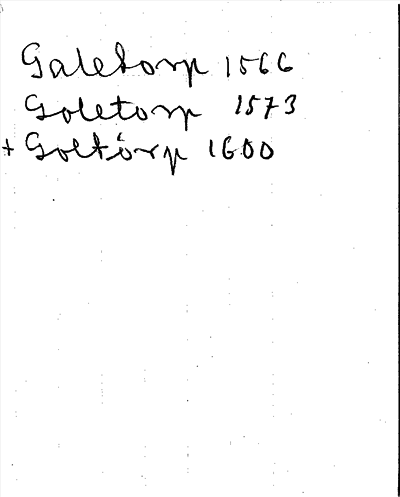 Galetorp 1566
Goletorp 1573
+ Goltorp 1600